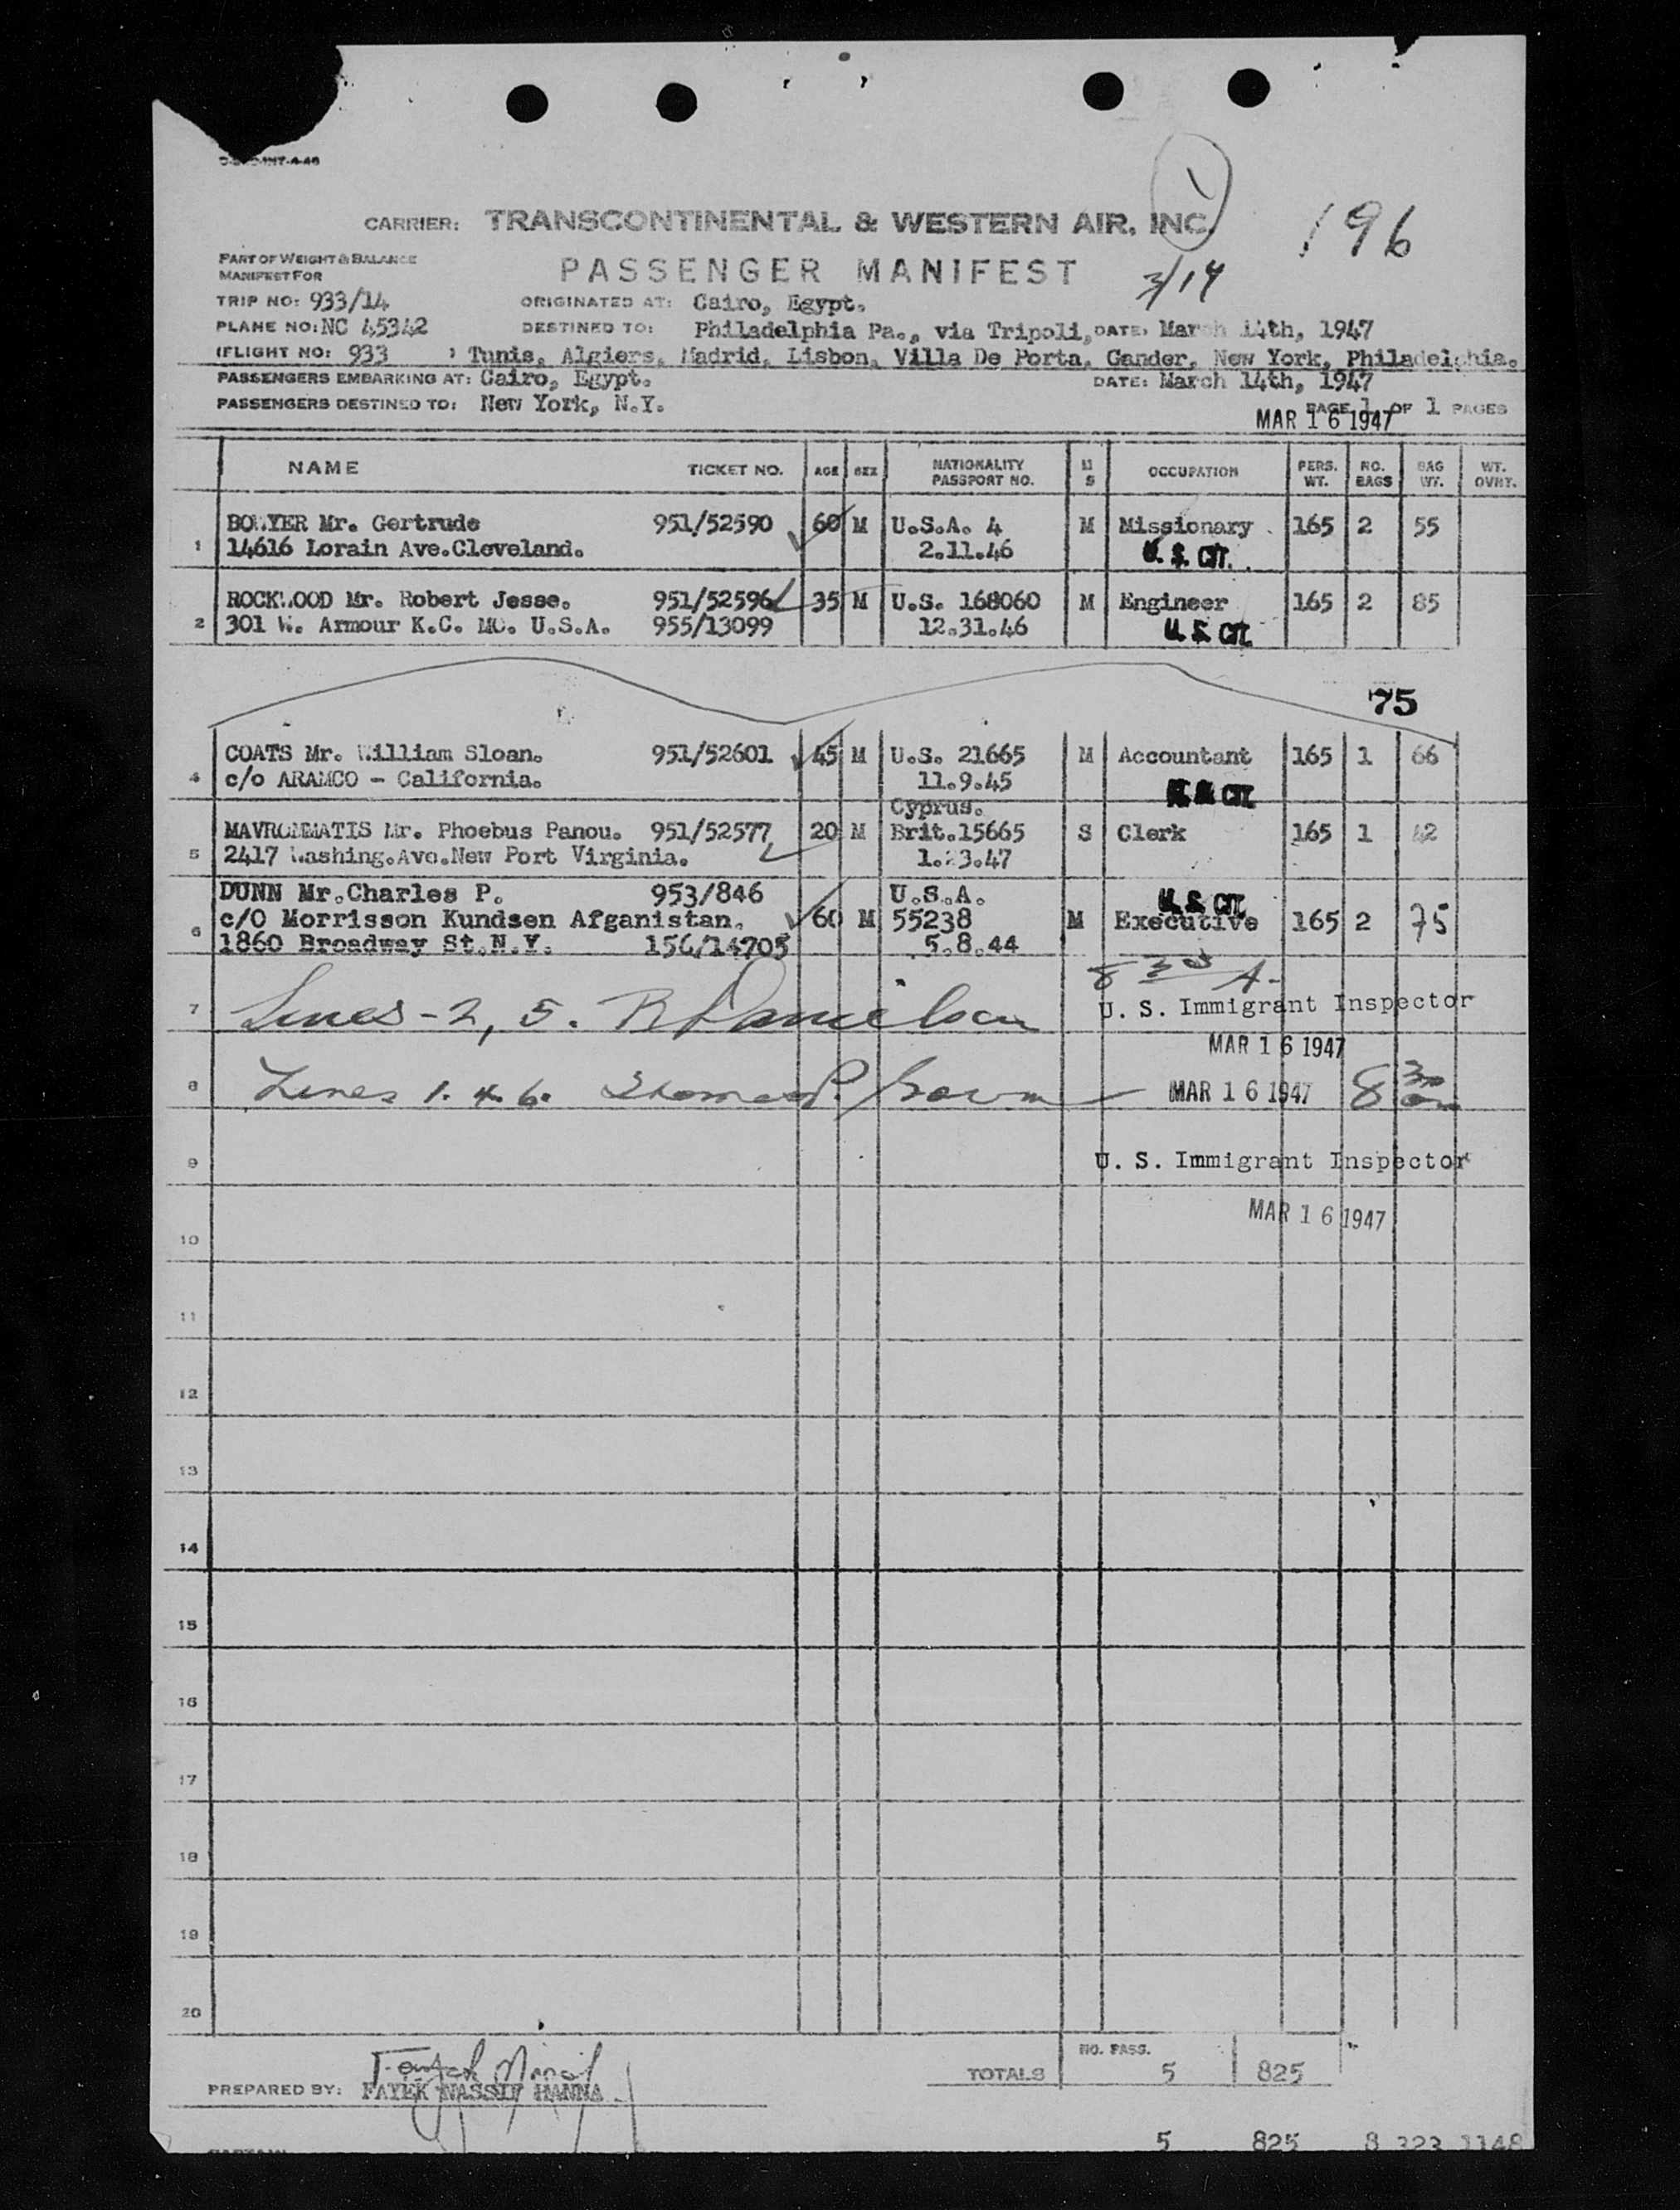 196
CARRIER: TRANSCONTINENTAL & WESTERN AIR, INC.
PART OF WEIGHT & BALANCE
MANIFEST FOR
PASSENGER MANIFEST 3/14
TRIP NO: 933/14 ORIGINATED AT: Cairo, Egypt.
PLANE NO: NC 45342 DESTINED TO: Philadelphia Pa., via Tripoli, DATE: March 14th, 1947
(FLIGHT NO: 933 ) Tunis, Algiers, Madrid, Lisbon, Villa De Porta, Gander, New York, Philadelphia.
PASSENGERS EMBARKING AT: Cairo, Egypt. DATE: March 14th, 1947
PASSENGERS DESTINED TO: New York, N.Y. PAGE 1 OF 1 PAGES
MAR 16 1947
NAME TICKET NO. AGE SEX NATIONALITY PASSPORT NO. M S OCCUPATION PERS. WT. NO. BAGS BAG WT. WT. OVHT.
BOWYER Mr. Gertrude 951/52590 60 M U.S.A. 4 M Missionary 165 2 55
1 14616 Lorain Ave.Cleveland. 2.11.46 U. S. CIT.
ROCKWOOD Mr. Robert Jesse. 951/52596 35 M U.S. 168060 M Engineer 165 2 85
2 301 W. Armour K.C. MO. U.S.A. 955/13099 12.31.46 U. S. CIT.
75
COATS Mr. William Sloan. 951/52601 45 M U.S. 21665 M Accountant 165 1 66
4 c/o ARAMCO - California. 11.9.45 U. S. CIT.
Cyprus.
MAVROMMATIS Mr. Phoebus Panou. 951/52577 20 M Brit.15665 S Clerk 165 1 42
5 2417 Washing.Ave.New Port Virginia. 1.23.47
DUNN Mr.Charles P. 953/846 U.S.A. U. S. CIT.
6 c/O Morrisson Kundsen Afganistan. 60 M 55238 M Executive 165 2 75
1860 Broadway St.N.Y. 156/14705 5.8.44
8 30 A.
7 Lines - 2, 5. R Danielson U. S. Immigrant Inspector
MAR 16 1947
8 Lines 1. 4. 6. Thomas P. Brown MAR 16 1947 8 30 am
9 U. S. Immigrant Inspector
MAR 16 1947
10
11
12
13
14
15
16
17
18
19
20
NO. PASS.
TOTALS 5 825
PREPARED BY: FAYEK NASSIF HANNA
CAPTAIN
5 825 8 323 1148